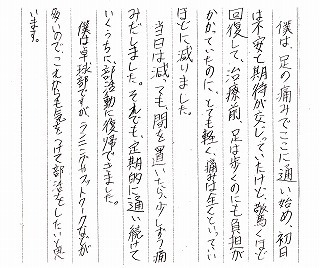 僕は、足の痛みでここに通い始め、初日
は不安と期待が交じっていたけど、驚くほど
回復して、治療前、足は歩くのにも負担が
かかっていたのに、とても軽く、痛みは全くといってい
いほどに減りました。
当日は減っても、間を置いたら、少しずつ痛
みだしました。それでも、定期的に通い続けて
いくうちに、部活動に復帰できました。
僕は卓球部ですが、ランニングやフットワークなどが
多いので、これからも気をつけて部活をしたいと思
います。